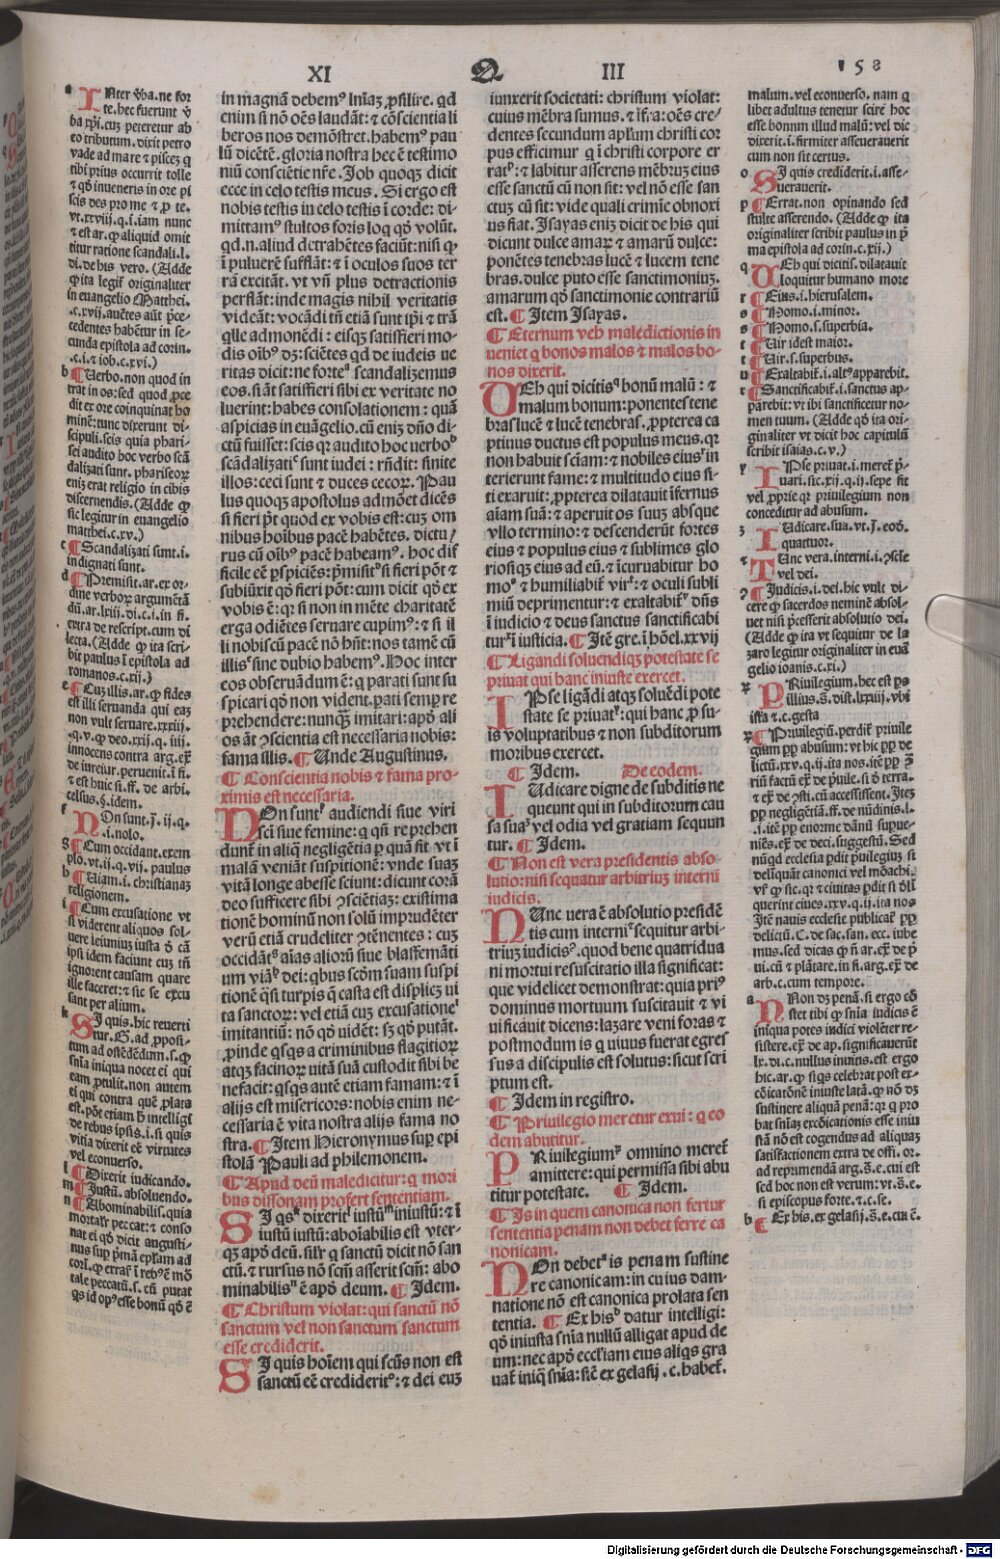 XI
Q
III
158
a Inter v̄ba. ne for
te. hec fuerunt v̄
ba xp̄i. cuꝫ peteretur ab
eo tributum. dixit petro
vade ad mare ⁊ pisceꝫ q
tibi prius occurrit tolle
⁊ qđ inueneris in ore pi
scis des pro me ⁊ ꝑ te.
vt. xxviij. q. i. iam nunc
⁊ est ar. ꝙ aliquid omit
titur ratione scandali. l.
di. de his vero. (Adde
ꝙ ita legit̄ originaliter
in euangelio Matthei.
c. xvij. auctes aūt p̄ce
cedentes habētur in se-
cunda epistola ad corin.
.c. i. ⁊ iob. c. xvi.)
b ¶ Uerbo. non quod in
trat in os: sed quod ꝓce
dit ex ore coinquinat ho
minē: tunc dixerunt di-
scipuli. scis quia phari-
sei audito hoc verbo scā
dalizati sunt. phariseoꝝ
eniꝫ erat religio in cibis
discernendis. (Adde ꝙ
sic legitur in euangelio
matthei. c. xv.)
c ¶ Scandalizati sunt. i.
indignati sunt.
d ¶ Premisit. ar. ex or-
dine verboꝝ argumētā
dū. ar. lxiii. di. c. i. in ff.
extra de rescript. cum di
lecta. (Adde ꝙ ita scri-
bit paulus ī epistola ad
romanos. c. xij.)
e ¶ Cuꝫ illis. ar. ꝙ fides
est illi seruanda qui eaꝫ
non vult seruare. xxxij.
.q. v. ꝙ deo. xxij. q. iiij.
innocens contra. arg. ex̄
de iureiur. peruenit. ī fi.
⁊ est huic si. ff. de arbi.
celsus. §. idem.
f Non sunt. j̄. ij. q.
.i. nolo.
g ¶ Cum occidant. exem
plo. vt. ij. q. vij. paulus
h ¶ Uiam. i. christianaꝫ
religionem.
i ¶ Cum excusatione vt
si viderent aliquos sol-
uere ieiunium iusta ō cā
ipsi idem faciunt cuꝫ tñ
ignorent causam quare
ille faceret: ⁊ sic se excu
sant per alium.
k Si quis. hic reuerti
tur. G. ad ꝓposi-
tum ad ostēdēdum. s. ꝙ
snīa iniqua nocet ei qui
eam ꝓtulit. non autem
ei qui contra quē ꝓlata
est. pōt etiam h̄ intelligi
de rebus ipsis. i. si quis
vitia dixerit eē virtutes
vel econuerso.
l ¶ Dixerit iudicando.
m ¶ Iustū. absoluendo.
n ¶ Abominabilis. quia
mortalr̄ peccat: ⁊ conso
nat ei qđ dicit augusti-
nus suꝑ p̄mā ep̄lam ad
corī. ꝙ errat̄ ī reb⁹ ē mō
tale peccatū. s. tū putat
qs id op⁹ esse bonū qđ ē
in magnā debem⁹ lnīaꝫ ꝓsilire. qđ
enim si nō oēs laudāt: ⁊ cōscientia li
beros nos demōstret. habem⁹ pau
lū dicētē. gloria nostra hec ē testimo
niū conscīetie nr̄e. Job quoqꝫ dicit
ecce in celo testis meus. Si ergo est
nobis testis in celo testis ī corde: di-
mittam⁹ stultos foris loq qđ volūt.
qđ. n. aliud detrahētes faciūt: nisi ꝙ
ī puluerē sufflāt: ⁊ ī oculos suos ter
rā excitāt. vt vn̄ plus detractionis
perflāt: inde magis nihil veritatis
videāt: vocādi tn̄ etiā sunt ip̄i ⁊ trā
qlle admonēdi: eisqꝫ satisfieri mo-
dis oīb⁹ dꝫ: sciētes qđ de iudeis ue
ritas dicit: ne forteᵃ scandalizemus
eos. si āt satisfieri sibi ex veritate no
luerint: habes consolationem: quā
aspicias in euāgelio. cū eniꝫ dn̄o di-
ctū fuisset: scis qꝛ audito hoc verboᵇ
scādalizatiᶜ sunt iudei: rn̄dit: sinite
illos: ceci sunt ⁊ duces cecoꝝ. Pau
lus quoqꝫ apostolus admōet dicēs
si fieri pōt quod ex vobis est: cuꝫ om
nibus hoībus pacē habētes. dictu/
rus cū oīb⁹ pacē habeam⁹. hoc dif
ficile eē ꝑspiciēs: p̄misitᵈ si fieri pōt ⁊
subiūxit qđ fieri pōt: cum dicit qđ ex
vobis ē: qꝛ si non in mēte charitatē
erga odiētes seruare cupim⁹: ⁊ si il
li nobiscū pacē nō hn̄t: nos tamē cū
illisᵉ sine dubio habem⁹. Hoc inter
eos obseruādum ē: q parati sunt su
spicari qđ non vident. pati semꝑ re
prehendere: nunqꝫ imitari: apđ ali
os āt ꝯscientia est necessaria nobis:
fama illis. ¶ Unde Augustinus.
¶ Conscientia nobis ⁊ fama pro-
ximis est necessaria.
Non suntᶠ audiendi siue viri
sci siue femine: q qn̄ reprehen
dunt̄ in aliq negligētia ꝑ quā fit vt ī
malā veniāt suspitionē: vnde suaꝫ
vitā longe abesse sciunt: dicunt corā
deo sufficere sibi ꝯsciētiaꝫ: existima
tionē hominū non solū imprudēter
verū etiā crudeliter ꝯtēnentes: cuꝫ
occidātᵍ aīas alioꝝ siue blasfemāti
um viāʰ dei: qbus scđm suam suspi
tionē qsi turpis q casta est displicꝫ ui
ta sanctoꝝ: vel etiā cuꝫ excusationeⁱ
imitantiū: nō qđ uidēt: sꝫ qđ putāt.
ꝓinde qsqs a criminibus flagitioꝝ
atqꝫ facinoꝝ uitā suā custodit sibi be
nefacit: qsqs autē etiam famam: ⁊ ī
alijs est misericors: nobis enim ne-
cessaria ē vita nostra alijs fama no
stra. ¶ Item Hieronymus suꝑ epi
stolā Pauli ad philemonem.
¶ Apud deū maledicitur: q mori
bus dissonam profert sententiam.
Si qsᵏ dixeritˡ iustūᵐ iniustū: ⁊ ī
iustū iustū: aboīabilis est vter-
qꝫ apđ deū. silr̄ q sanctū dicit nō san
ctū. ⁊ rursus nō scm̄ asserit scm̄: abo
minabilisⁿ ē apđ deum. ¶ Idem.
¶ Christum violat: qui sanctū nō
sanctum vel non sanctum sanctum
esse crediderit.
Si quis hoīem qui scūs non est
sanctū eē credideritᵒ: ⁊ dei euꝫ
iunxerit societati: christum violat:
cuius mēbra sumus. ⁊ īfra: oēs cre-
dentes secundum aplum christi cor
pus efficimur q ī christi corpore er
ratᵖ: ⁊ labitur asserens mēbruꝫ eius
esse sanctū cū non sit: vel nō esse san
ctuꝫ cū sit: vide quali crimīe obnoxi
us fiat. Isayas eniꝫ dicit de his qui
dicunt dulce amaꝝ ⁊ amarū dulce:
ponētes tenebras lucē ⁊ lucem tene
bras. dulce puto esse sanctimoniuꝫ.
amarum qđ sanctimonie contrariū
est. ¶ Item Isayas.
¶ Eternum veh maledictionis in
ueniet q bonos malos ⁊ malos bo-
nos dixerit.
Ueh qui dicitis bonū malū: ⁊
malum bonum: ponentes tene
bras lucē ⁊ lucē tenebras. ꝓpterea ca
ptiuus ductus est populus meus. qꝛ
non habuit sciam: ⁊ nobiles eiusʳ in
terierunt fame: ⁊ multitudo eius si-
ti exaruit: ꝓpterea dilatauit īfernus
aīam suā: ⁊ aperuit os suuꝫ absque
vllo termino: ⁊ descenderūt fortes
eius ⁊ populus eius ⁊ sublimes glo
riosiqꝫ eius ad eū. ⁊ īcuruabitur ho
mo ⁊ humiliabit̄ vir: ⁊ oculi subli
miū deprimentur: ⁊ exaltabit̄ dn̄s
ī iudicio ⁊ deus sanctus sanctificabi
tur ī iusticia. ¶ Itē gre. ī hōel. xxvij
¶ Ligandi soluendiqꝫ potestate se
priuat qui hanc iniuste exercet.
Ipse ligādi atqꝫ soluēdi pote
state se priuat: qui hanc ꝓ su-
is voluptatibus ⁊ non subditorum
moribus exercet.
¶ Idem. De eodem.
Iudicare digne de subditis ne
queunt qui in subditorum cau
sa sua vel odia vel gratiam sequun
tur. ¶ Idem.
¶ Non est vera presidentis abso-
lutio: nisi sequatur arbitriuꝫ interni
iudicis.
Nunc uera ē absolutio presidē
tis cum interni sequitur arbi-
triuꝫ iudicis. quod bene quatridua
ni mortui resuscitatio illa significat:
que videlicet demonstrat: quia pri⁹
dominus mortuum suscitauit ⁊ vi
uificauit dicens: lazare veni foras ⁊
postmodum is q uiuus fuerat egres
sus a discipulis est solutus: sicut scri
ptum est.
¶ Idem in registro.
¶ Priuilegio meretur exui: q eo
dem abutitur.
Priuilegium omnino meret̄
amittere: qui permissa sibi abu
titur potestate. ¶ Idem.
¶ Is in quem canonica non fertur
sententia penam non debet ferre ca
nonicam.
Non debetᵃ is penam sustine
re canonicam: in cuius dam-
natione nō est canonica prolata sen
tentia. ¶ Ex hisᵇ datur intelligi:
qđ iniusta snīa nullū alligat apud de
um: nec apđ eccliam eius aliqs gra
uat̄ iniq snīa: sic̄ ex gelasij. c. habet̄.
malum. vel econuerso. nam q
libet adultus tenetur scire hoc
esse bonnm illud malū: vel dic
dixerit. i. firmiter asseuerauerit
cum non sit certus.
o Si quis crediderit. i. asse-
uerauerit.
p ¶ Errat. non opinando sed
stulte asserendo. (Adde ꝙ ita
originaliter scribit paulus in p̄
ma epistola ad corin. c. xii.)
q Ueh qui dicitis. dilatauit
loquitur humano more
r ¶ Eius. i. hierusalem.
s ¶ Homo. i. minor.
s ¶ Homo. s. superbia.
t ¶ Uir idest maior.
t ¶ Uir. s. superbus.
u ¶ Exaltabit̄. i. alt⁹ apparebit.
x ¶ Sanctificabit̄. i. sanctus ap-
parebit: vt ibi sanctificetur no-
men tuum. (Adde qđ ita ori-
ginaliter vt dicit hoc capitulū
scribit isaias. c. v.)
y Ipse priuat. i. meret̄ p̄-
uari. sic. xij. q. ij. sepe fit
vel ꝓprie qꝛ priuilegium non
conceditur ad abusum.
z Iudicare. sua. vt. j̄. eođ.
quattuor.
Tunc vera. interni. i. ꝯscīe
vel dei.
¶ Iudicis. i. dei. hic vult di-
cere ꝙ sacerdos neminē absol-
uet nisi p̄cesserit absolutio dei.
(Adde ꝙ ita vt sequitur de la
zaro legitur originaliter in euā
gelio ioanis. c. xi.)
Priuilegium. hec est ꝑs
illius. §. dist. lxxiiij. vbi
ista ⁊. c. gesta
¶ Priuilegiū. perdit̄ priuile
gium ꝓꝑ abusum: vt hic ꝓꝑ de
lictū. xxv. q. ij. ita nos. itē ꝓꝑ ꝯ̄
riū factū ex̄ de p̄uile. si ō terra.
⁊ ex̄ de ꝯsti. cū accessissent. Iteꝫ
ꝓꝑ negligētiā. ff. de nūdinis. l.
.i. itē ꝓꝑ enorme dānū supue-
niēs. ex̄ de deci. suggestū. Sed
nūqđ ecclesia ꝑdit p̄uilegiuꝫ si
deliquāt canonici vel mōachi.
vr̄ ꝙ sic. qꝛ ⁊ ciuitas ꝑdit si dell
querint ciues. xxv. q. ij. ita nos
Itē nauis ecclesie publicat̄ ꝓꝑ
delictū. C. de sac. san. ecc. iube
mus. sed dicas ꝙ ñ ar. ex̄ de p̄
ui. cū ⁊ plātare. in fi. arg. ex̄ de
arb. c. cum tempore.
a Non dꝫ penā. si ergo cō
stet tibi ꝙ snīa iudicis ē
iniqua potes iudici violēter re-
sistere. ex̄ de ap. significauerūt
lx. di. c. nullus inuitus. est ergo
hic. ar. ꝙ siqs celebrat post ex-
cōicatōnē iniuste latā. ꝙ nō dꝫ
sustinere aliquā penā: qꝛ q pro
bat snīaꝫ excōicationis esse iniu
stā nō est cogendus ad aliquaꝫ
satisfactionem extra de offi. or.
ad reprimendā arg. s̄. e. cui est
sed hoc non est verum: vt. s̄. e.
si episcopus forte. ⁊. c. se.
b ¶ Ex his. ex gelasij. s̄. e. cui ē.
Digitalisierung gefördert durch die Deutsche Forschungsgemeinschaft - DFG